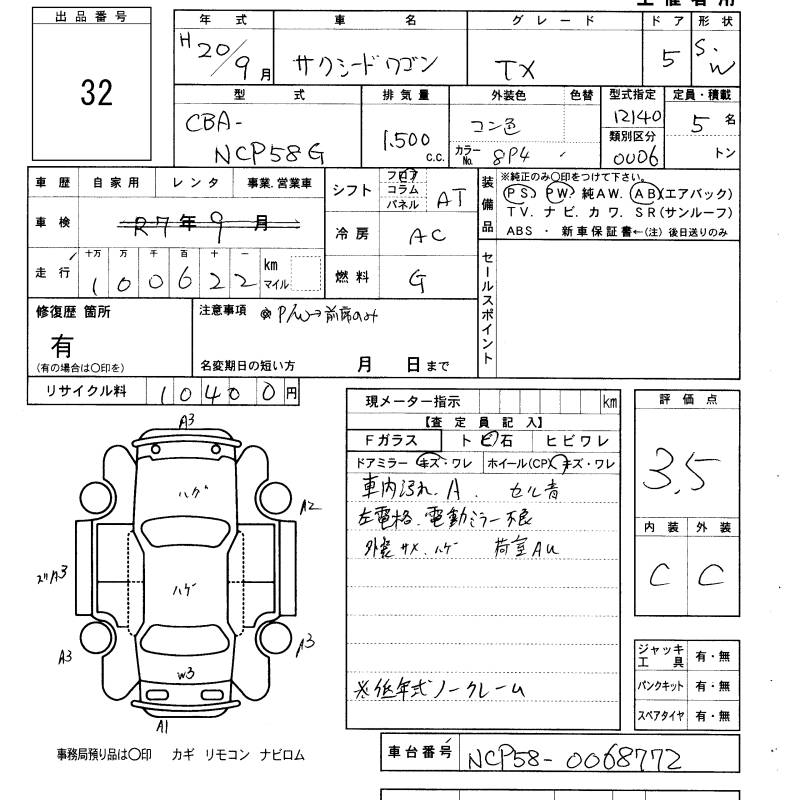 出品番号
32
年式 車名 グレード ドア 形状
H 20/9月 サクシードワゴン TX 5 S.W
型式 排気量 外装色 色替 型式指定 定員・積載
CBA-NCP58G 1,500 c.c. コン色 カラーNo. 8P4 12140 5名
類別区分 0006 トン
車歴 自家用 レンタ 事業.営業車
車検 R7年9月
走行 十万 万 千 百 十 一 km マイル
100622
シフト フロア コラム パネル AT
冷房 AC
燃料 G
装備品 ※純正のみ○印をつけて下さい。
PS. PW. 純AW. AB(エアバック)
TV. ナビ. カワ. SR(サンルーフ)
ABS ・ 新車保証書←(注) 後日送りのみ
セールスポイント
修復歴 箇所
有
(有の場合は○印を)
注意事項 P/W→前席のみ
名変期日の短い方 月 日まで
リサイクル料 10400円
現メーター指示 km
【査定員記入】
Fガラス ト ビ石 ヒビワレ
ドアミラー キズ・ワレ ホイール(CP) キズ・ワレ
車内汚れ.A.
左電格.電動ミラー不良
外装サメ.ハゲ 荷室AU
※低年式ノークレーム
評価点
3.5
内装 外装
C C
ジャッキ工具 有・無
パンクキット 有・無
スペアタイヤ 有・無
A3
ハゲ
A2
A3
ハゲ
A3
A3
W3
A1
事務局預り品は○印 カギ リモコン ナビロム
車台番号 NCP58-0068772